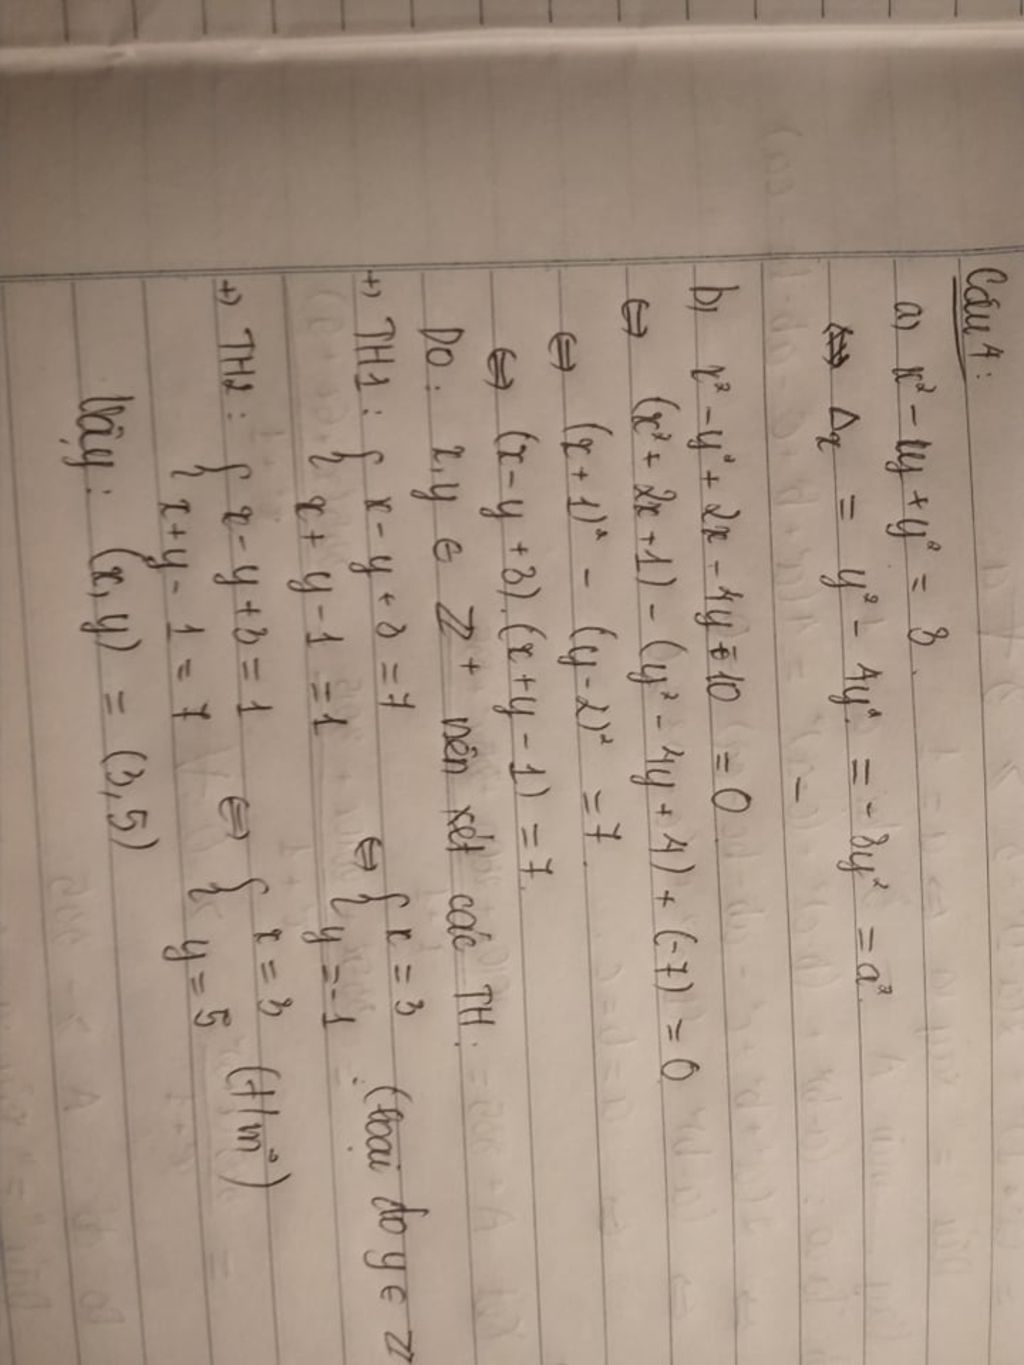 Câu 4:
a) x² - xy + y² = 3.
⇔ Δx = y² - 4y² = -3y² = a².
b) x² - y² + 2x - 4y - 10 = 0
⇔ (x² + 2x + 1) - (y² - 4y + 4) + (-7) = 0
⇔ (x + 1)² - (y - 2)² = 7.
⇔ (x - y + 3).(x + y - 1) = 7.
Do: x, y ∈ Z⁺ nên xét các TH:
+) TH1: { x - y + 3 = 7 ⇔ { x = 3 (loại do y ∈ Z
{ x + y - 1 = 1 { y = -1
+) TH2: { x - y + 3 = 1 ⇔ { x = 3 (t/m²)
{ x + y - 1 = 7 { y = 5
Vậy: (x, y) = (3, 5)